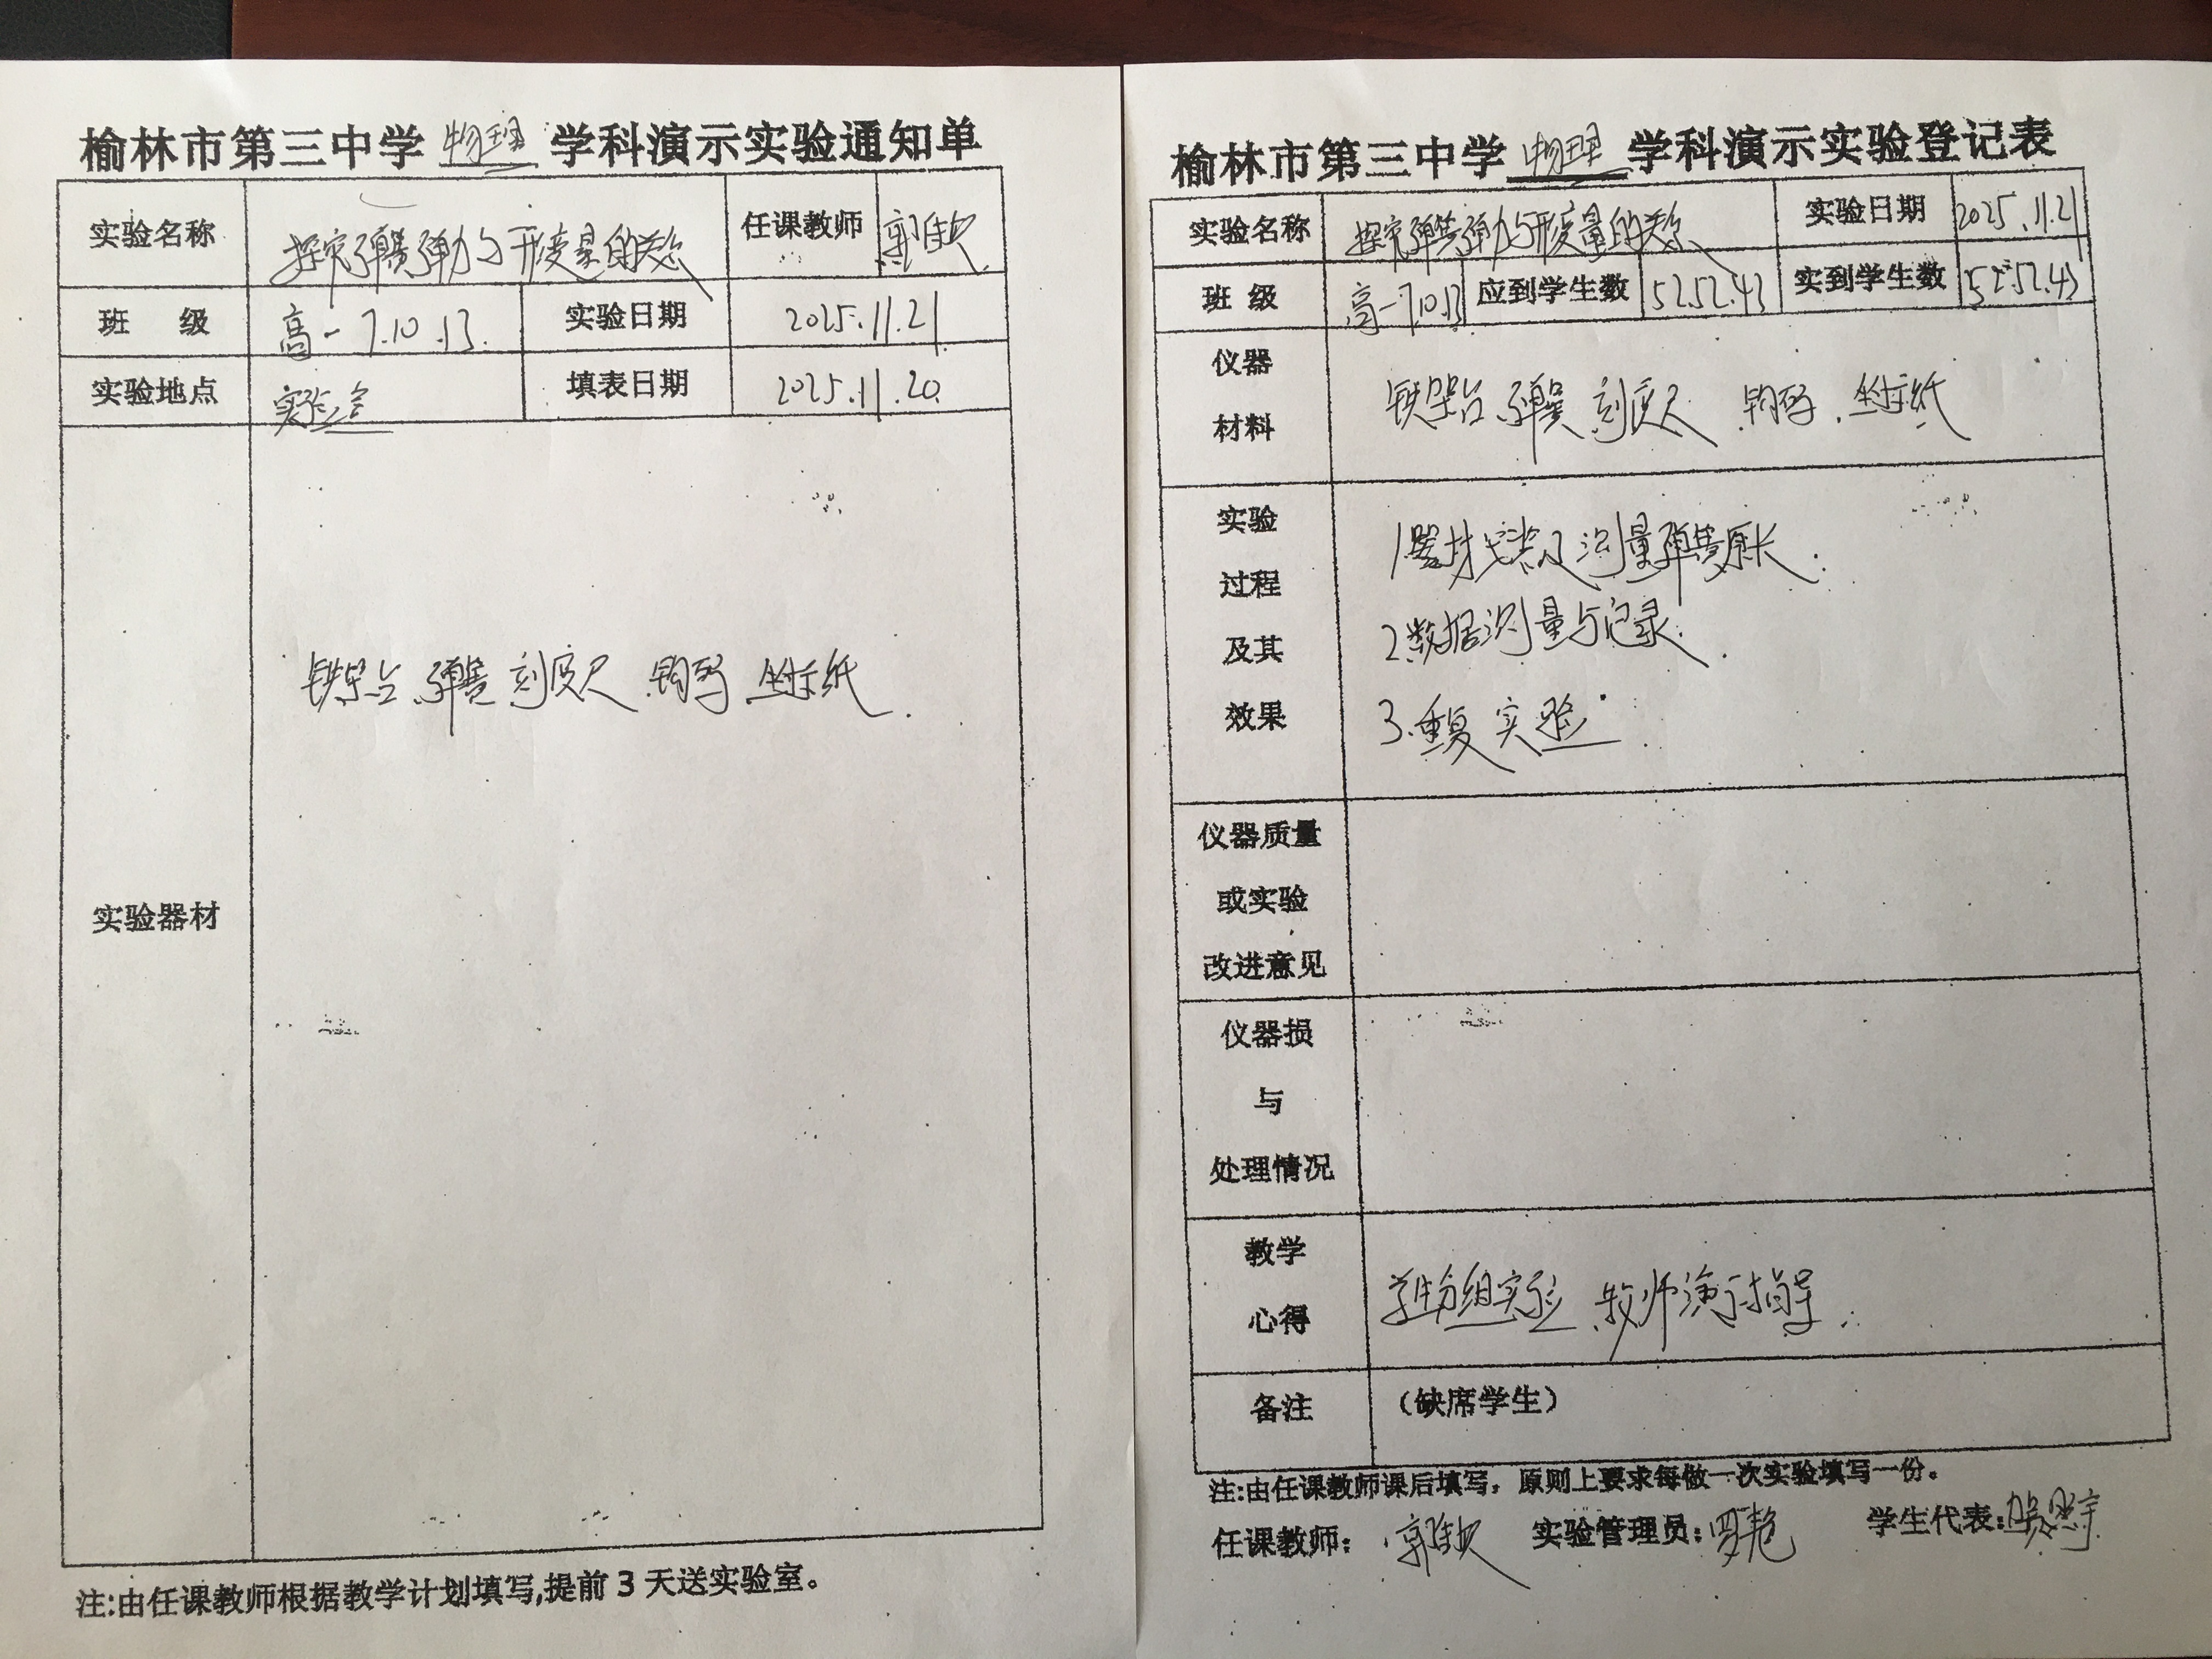 榆林市第三中学 物理 学科演示实验通知单
实验名称 探究弹簧弹力与形变量的关系 任课教师
班 级 高一 7.10.13. 实验日期 2025.11.21
实验地点 实验室 填表日期 2025.11.20
实验器材 铁架台 弹簧 刻度尺 钩码 坐标纸.
注:由任课教师根据教学计划填写,提前3天送实验室。
榆林市第三中学 物理 学科演示实验登记表
实验名称 探究弹簧弹力与形变量的关系 实验日期 2025.11.21
班 级 高一7.10.13 应到学生数 52.52.43 实到学生数 52.52.43
仪器
材料
铁架台 弹簧 刻度尺 钩码. 坐标纸
实验
过程
及其
效果
1.器材安装及测量弹簧原长.
2.数据测量与记录.
3.重复实验.
仪器质量
或实验
改进意见
仪器损
与
处理情况
教学
心得
学生分组实验 教师演示指导.
备注 （缺席学生）
注:由任课教师课后填写，原则上要求每做一次实验填写一份。
任课教师： 实验管理员: 罗艳 学生代表: